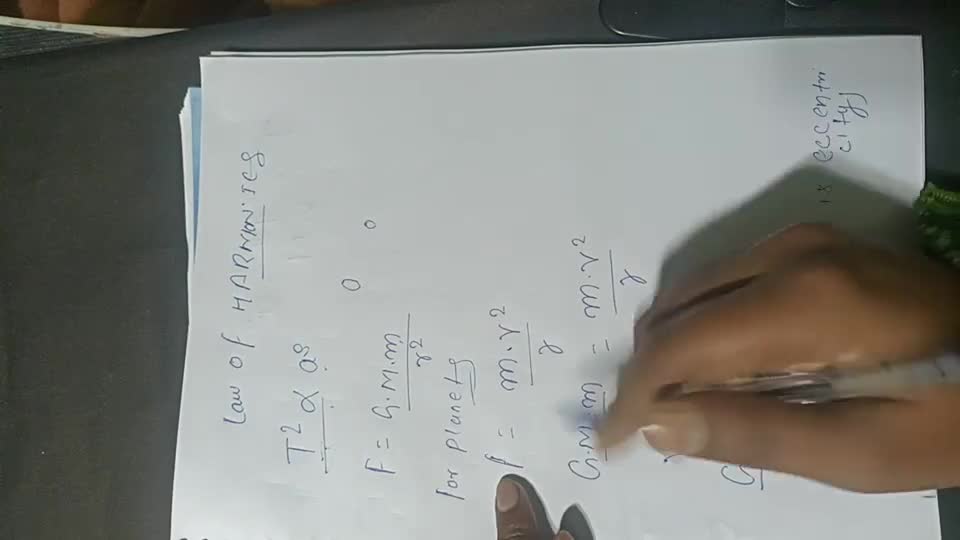 Law of HARMONICS
T² α a³
o o
F = G.M.m / r²
for planets
f = m.v² / r
G.M.m = m.v² / r
G
is eccentri
city